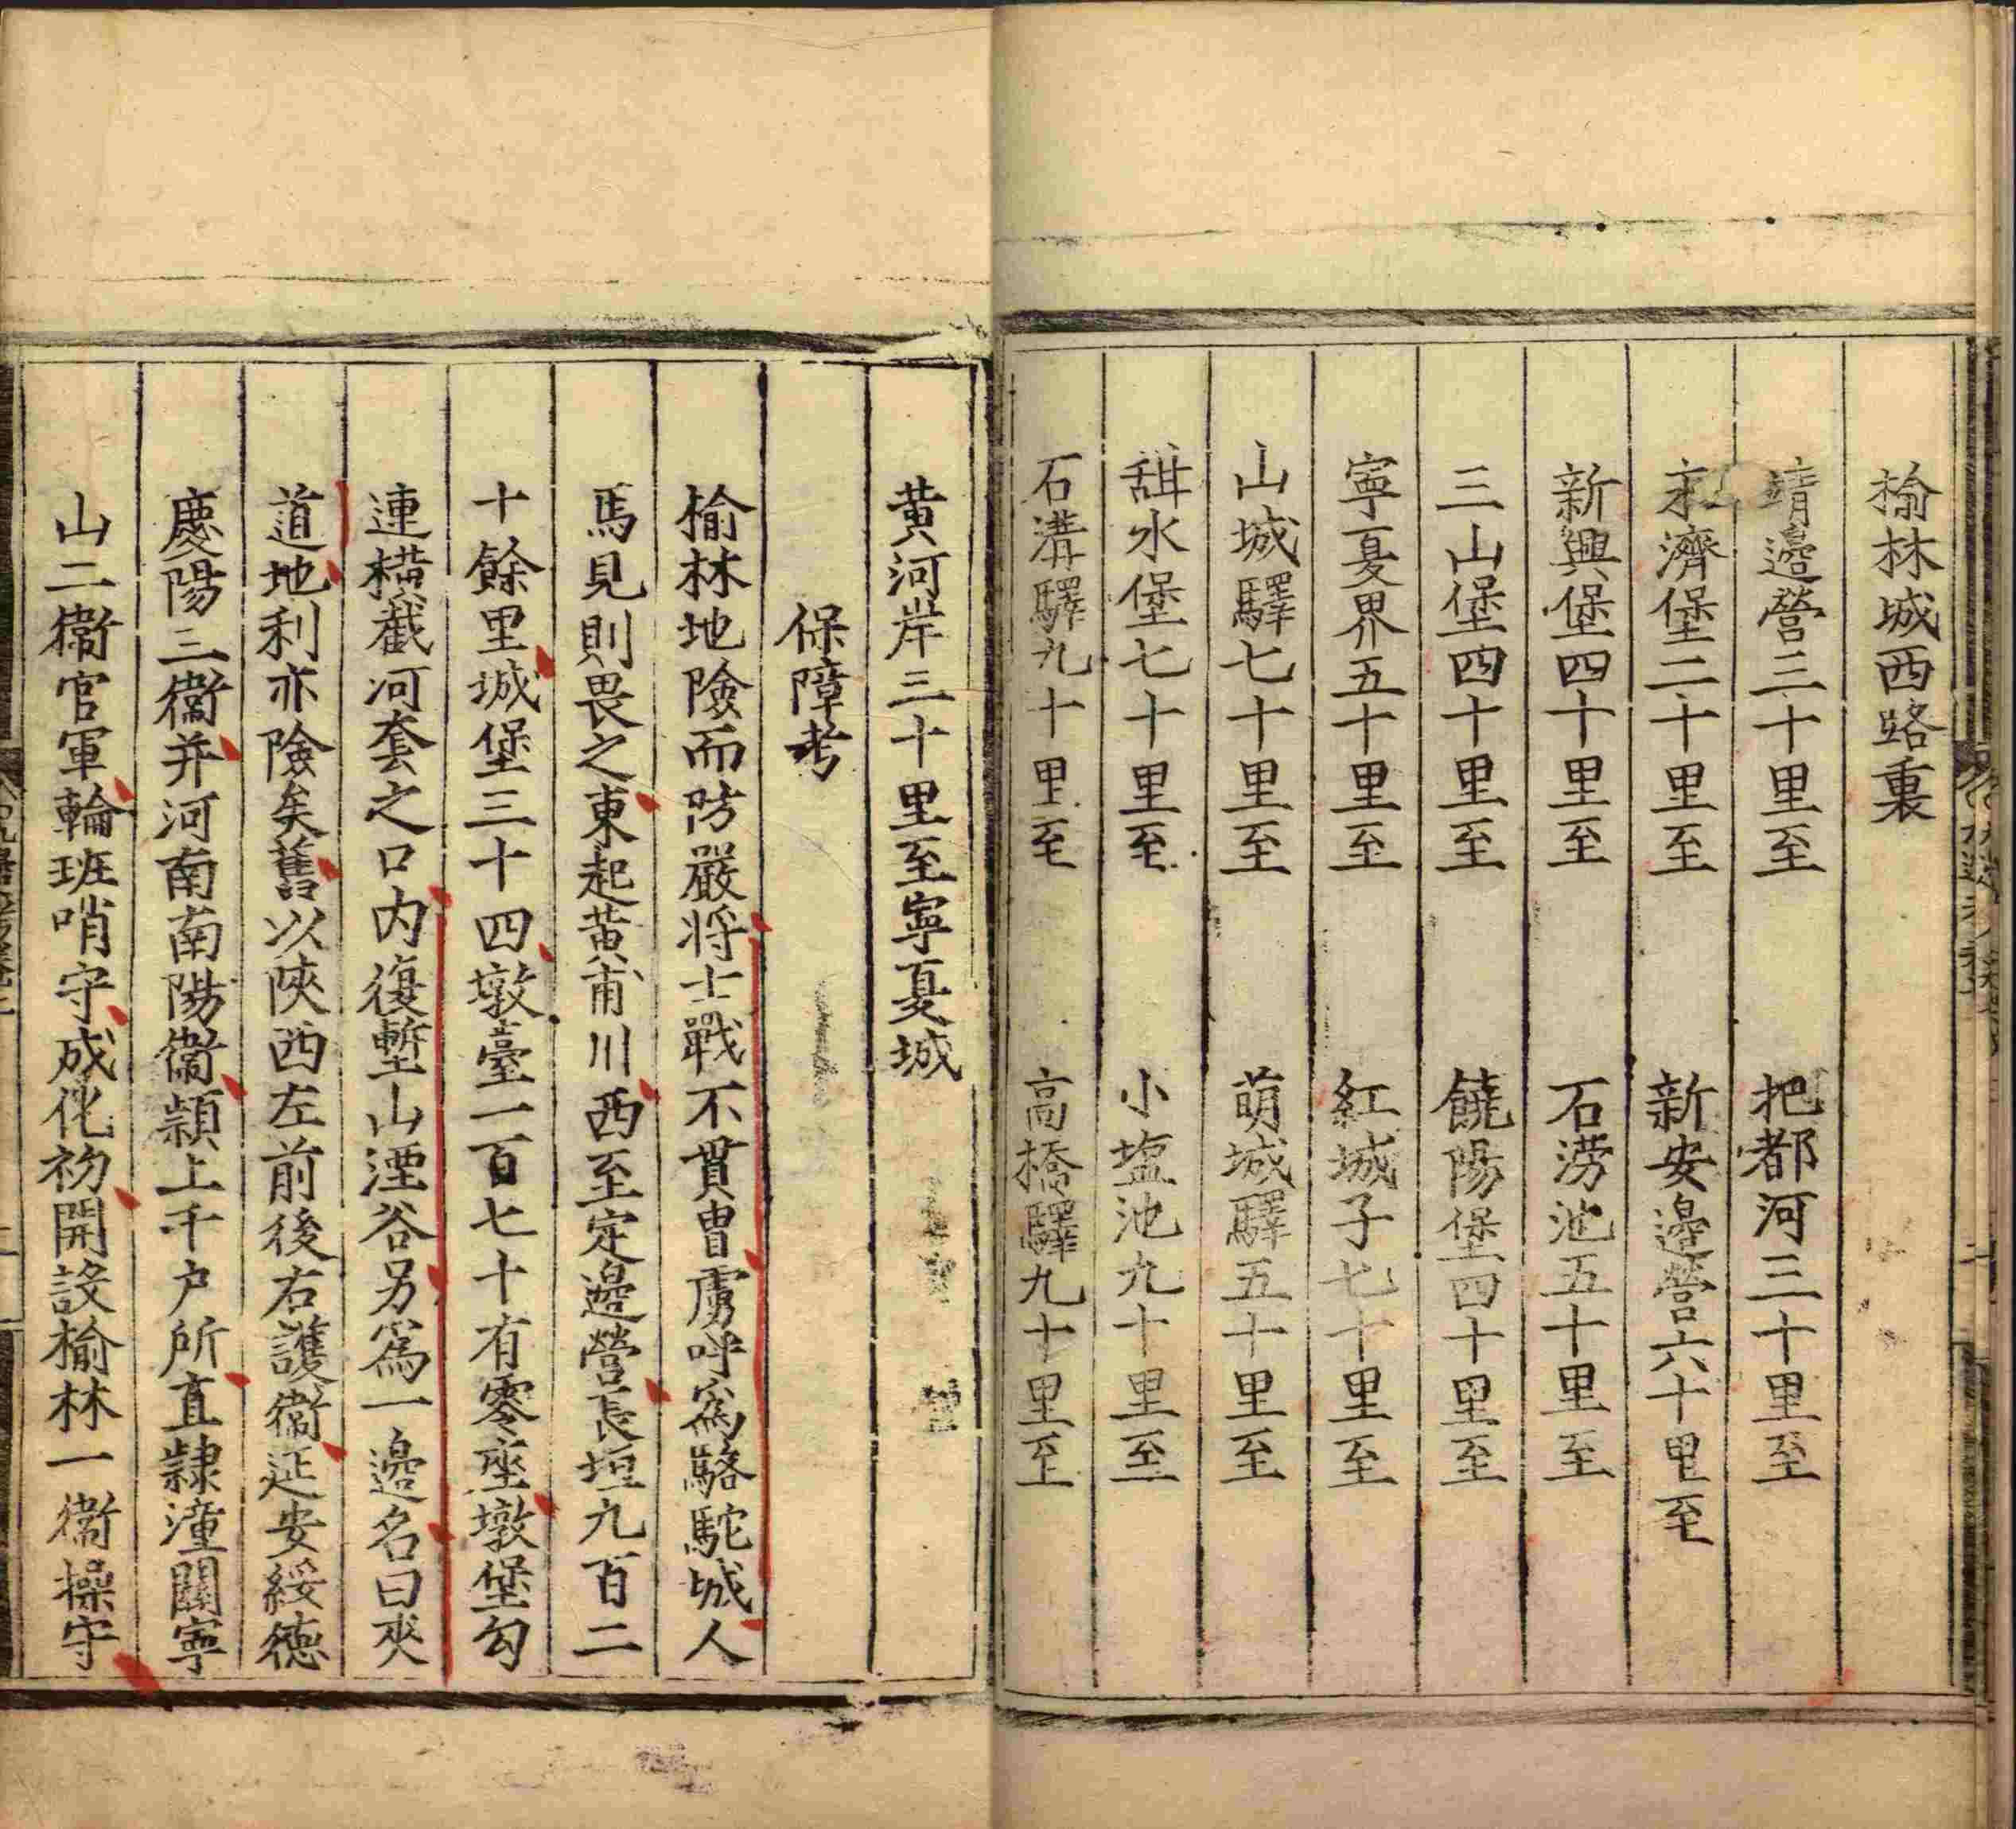 榆林城西路裏
靖邊營三十里至　把都河三十里至
永濟堡二十里至　新安邊營六十里至
新興堡四十里至　石涝池五十里至
三山堡四十里至　饒陽堡四十里至
寧夏界五十里至　紅城子七十里至
山城驛七十里至　萌城驛五十里至
甜水堡七十里至　小塩池九十里至
石溝驛九十里至　高橋驛九十里至
黄河岸三十里至寧夏城
保障考
榆林地險而防嚴将士戰不貫胄虜呼爲駱駝城人
馬見則畏之東起黄甫川西至定邊營長垣九百二
十餘里城堡三十四墩臺一百七十有零座墩堡勾
連横截河套之口内復塹山湮谷另爲一邊名曰夾
道地利亦險矣舊以陝西左前後右護衞延安綏德
慶陽三衞并河南南陽衞潁上千户所直隷潼關寧
山二衞官軍輪班哨守成化初開設榆林一衞操守